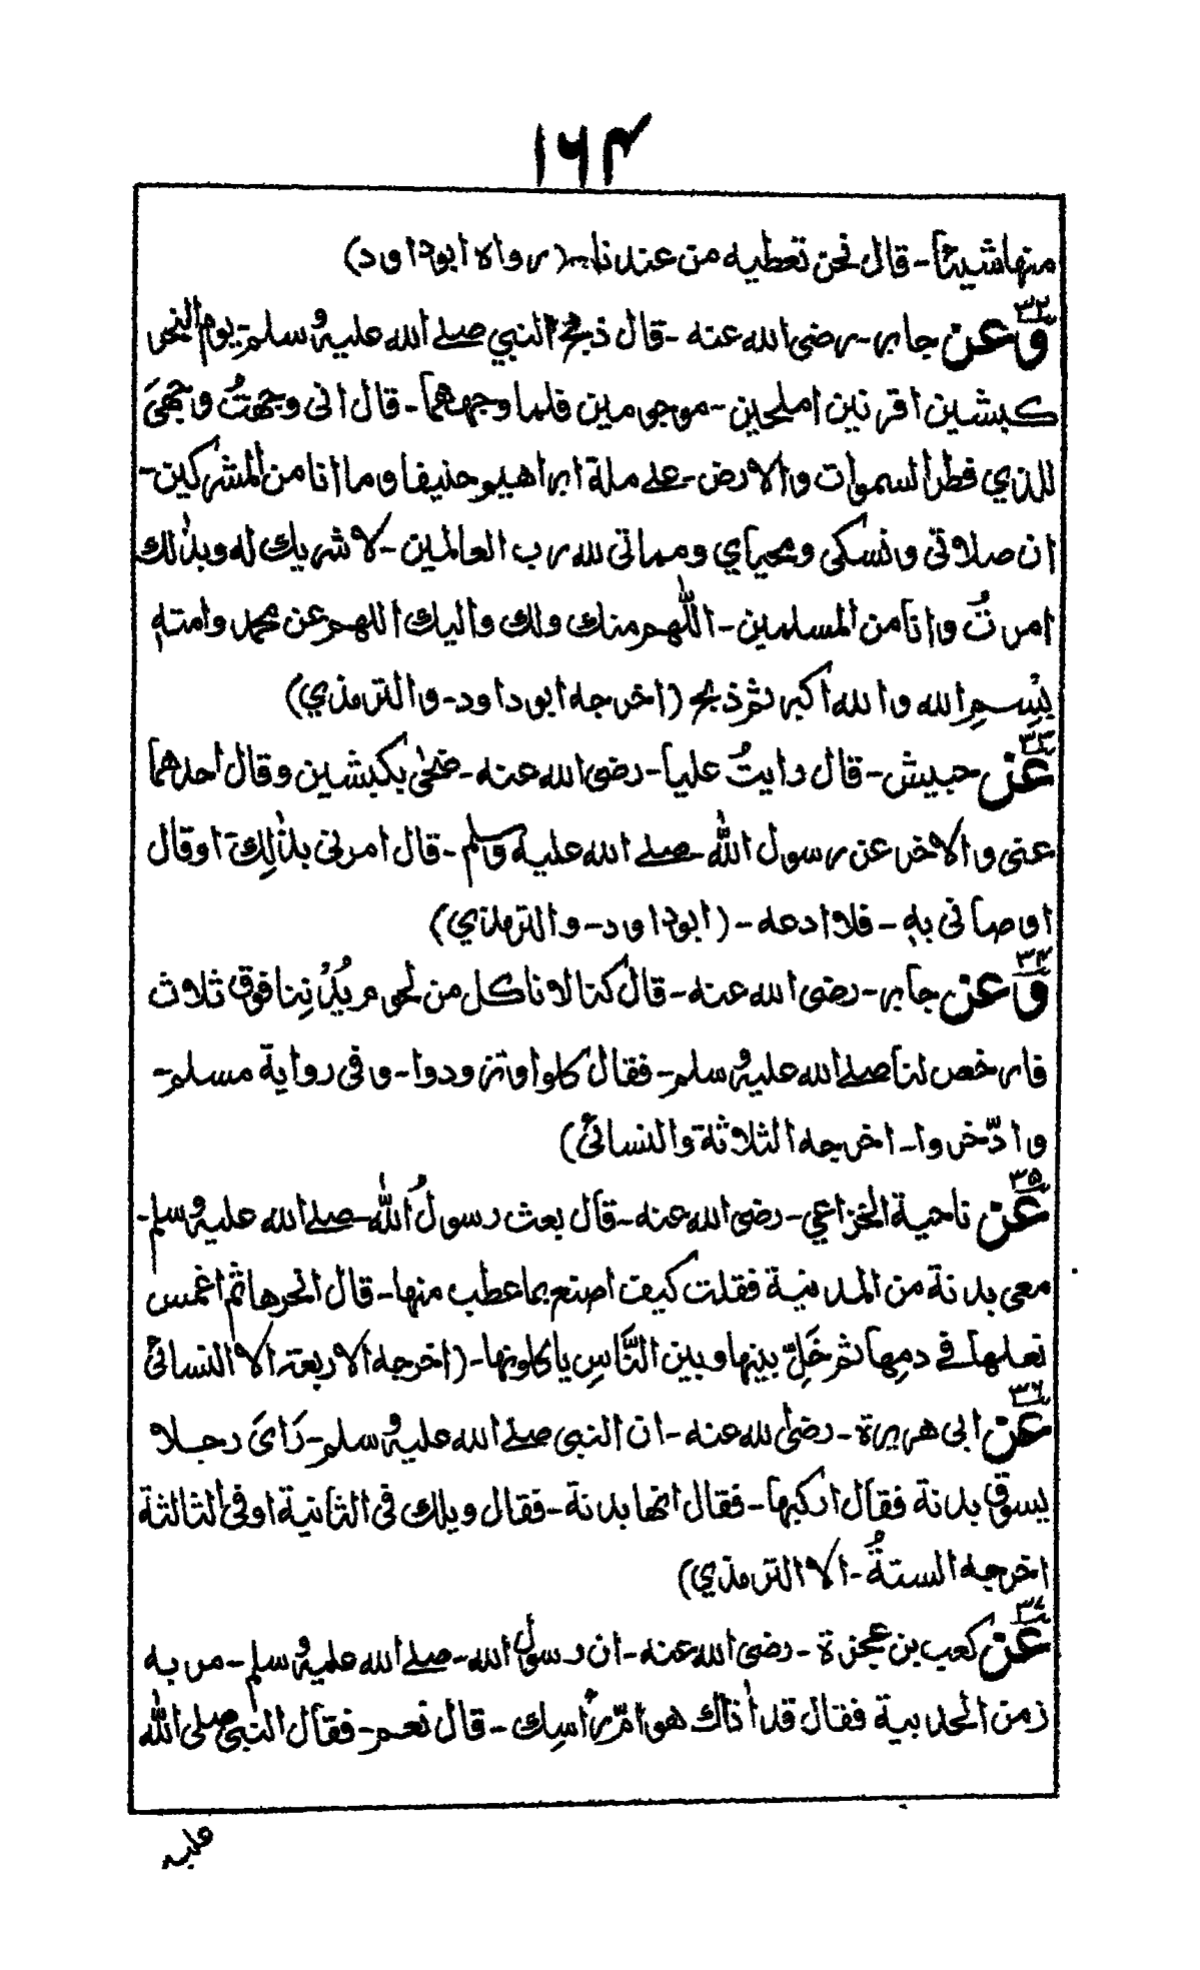 ١٦٣
منها شيئا - قال نحن نعطيه من عندنا - (رواه ابوداود)
٣٢
وعن جابر - رضى الله عنه - قال ذبح النبي صلے الله عليه وسلم - يوم النحر
كبشين اقرنين املحين - موجومين فلما وجههما - قال انى وجهتُ وجهىَ
للذي فطر السموات والارض - علے ملة ابراهيم حنيفا وما انا من المشركين -
ان صلاتى ونسكى ومحياي ومماتى لله رب العالمين - لا شريك له وبذٰلك
امرتُ وانا من المسلمين - اللّٰهم منك ولك واليك اللهم عن محمد وامته
بِسمِ الله والله اكبر ثم ذبح (اخرجه ابو داود - والترمذي)
٣٣
عن حبيش - قال رايتُ عليا - رضى الله عنه - ضحٰى بكبشين وقال احدهما
عنى والاخر عن رسول اللّٰه - صلے الله عليه وسلم - قال امرنى بذٰلِك او قال
اوصانى به - فلا ادعه - (ابوداود - والترمذي)
٣٤
وعن جابر - رضى الله عنه - قال كنا لا ناكل من لحوم بُدْنِنا فوق ثلاث
فارخص لنا صلے الله عليه وسلم - فقال كلوا وتزودوا - وفى رواية مسلم -
وادّخروا - اخرجه الثلاثة والنسائى)
٣٥
عن ناحية الخزاعي - رضى الله عنه - قال بعث رسولُ اللّٰه - صلے الله عليه وسلم -
معى بدنة من المدينة فقلت كيف اصنع بما عطب منها - قال انحرها ثم اغمس
نعلها فے دمها ثم خَلِّ بينها وبين النَّاسِ ياكلونها - (اخرجه الاربعة الا النسائى
٣٦
عن ابى هريرة - رضى الله عنه - ان النبى صلے الله عليه وسلم - رَاىَ رجلا
يسوق بدنة فقال اركبها - فقال انها بدنة - فقال ويلك فى الثانية او فى الثالثة
اخرجه الستةُ - الا الترمذي)
٣٧
عن كعب بن عجزة - رضى الله عنه - ان رسول الله - صلے الله عليه وسلم - مر به
زمن الحديبية فقال قد اٰذاك هوامّ رأسِك - قال نعم - فقال النبى صلى اللّٰه
عليه